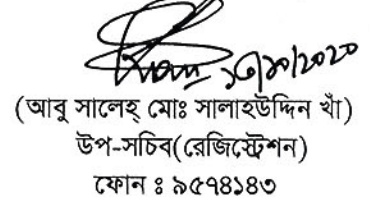 ১৩/১০/২০২০
(আবু সালেহ্ মোঃ সালাহউদ্দিন খাঁ)
উপ-সচিব(রেজিস্ট্রেশন)
ফোন ঃ ৯৫৭৪১৪৩